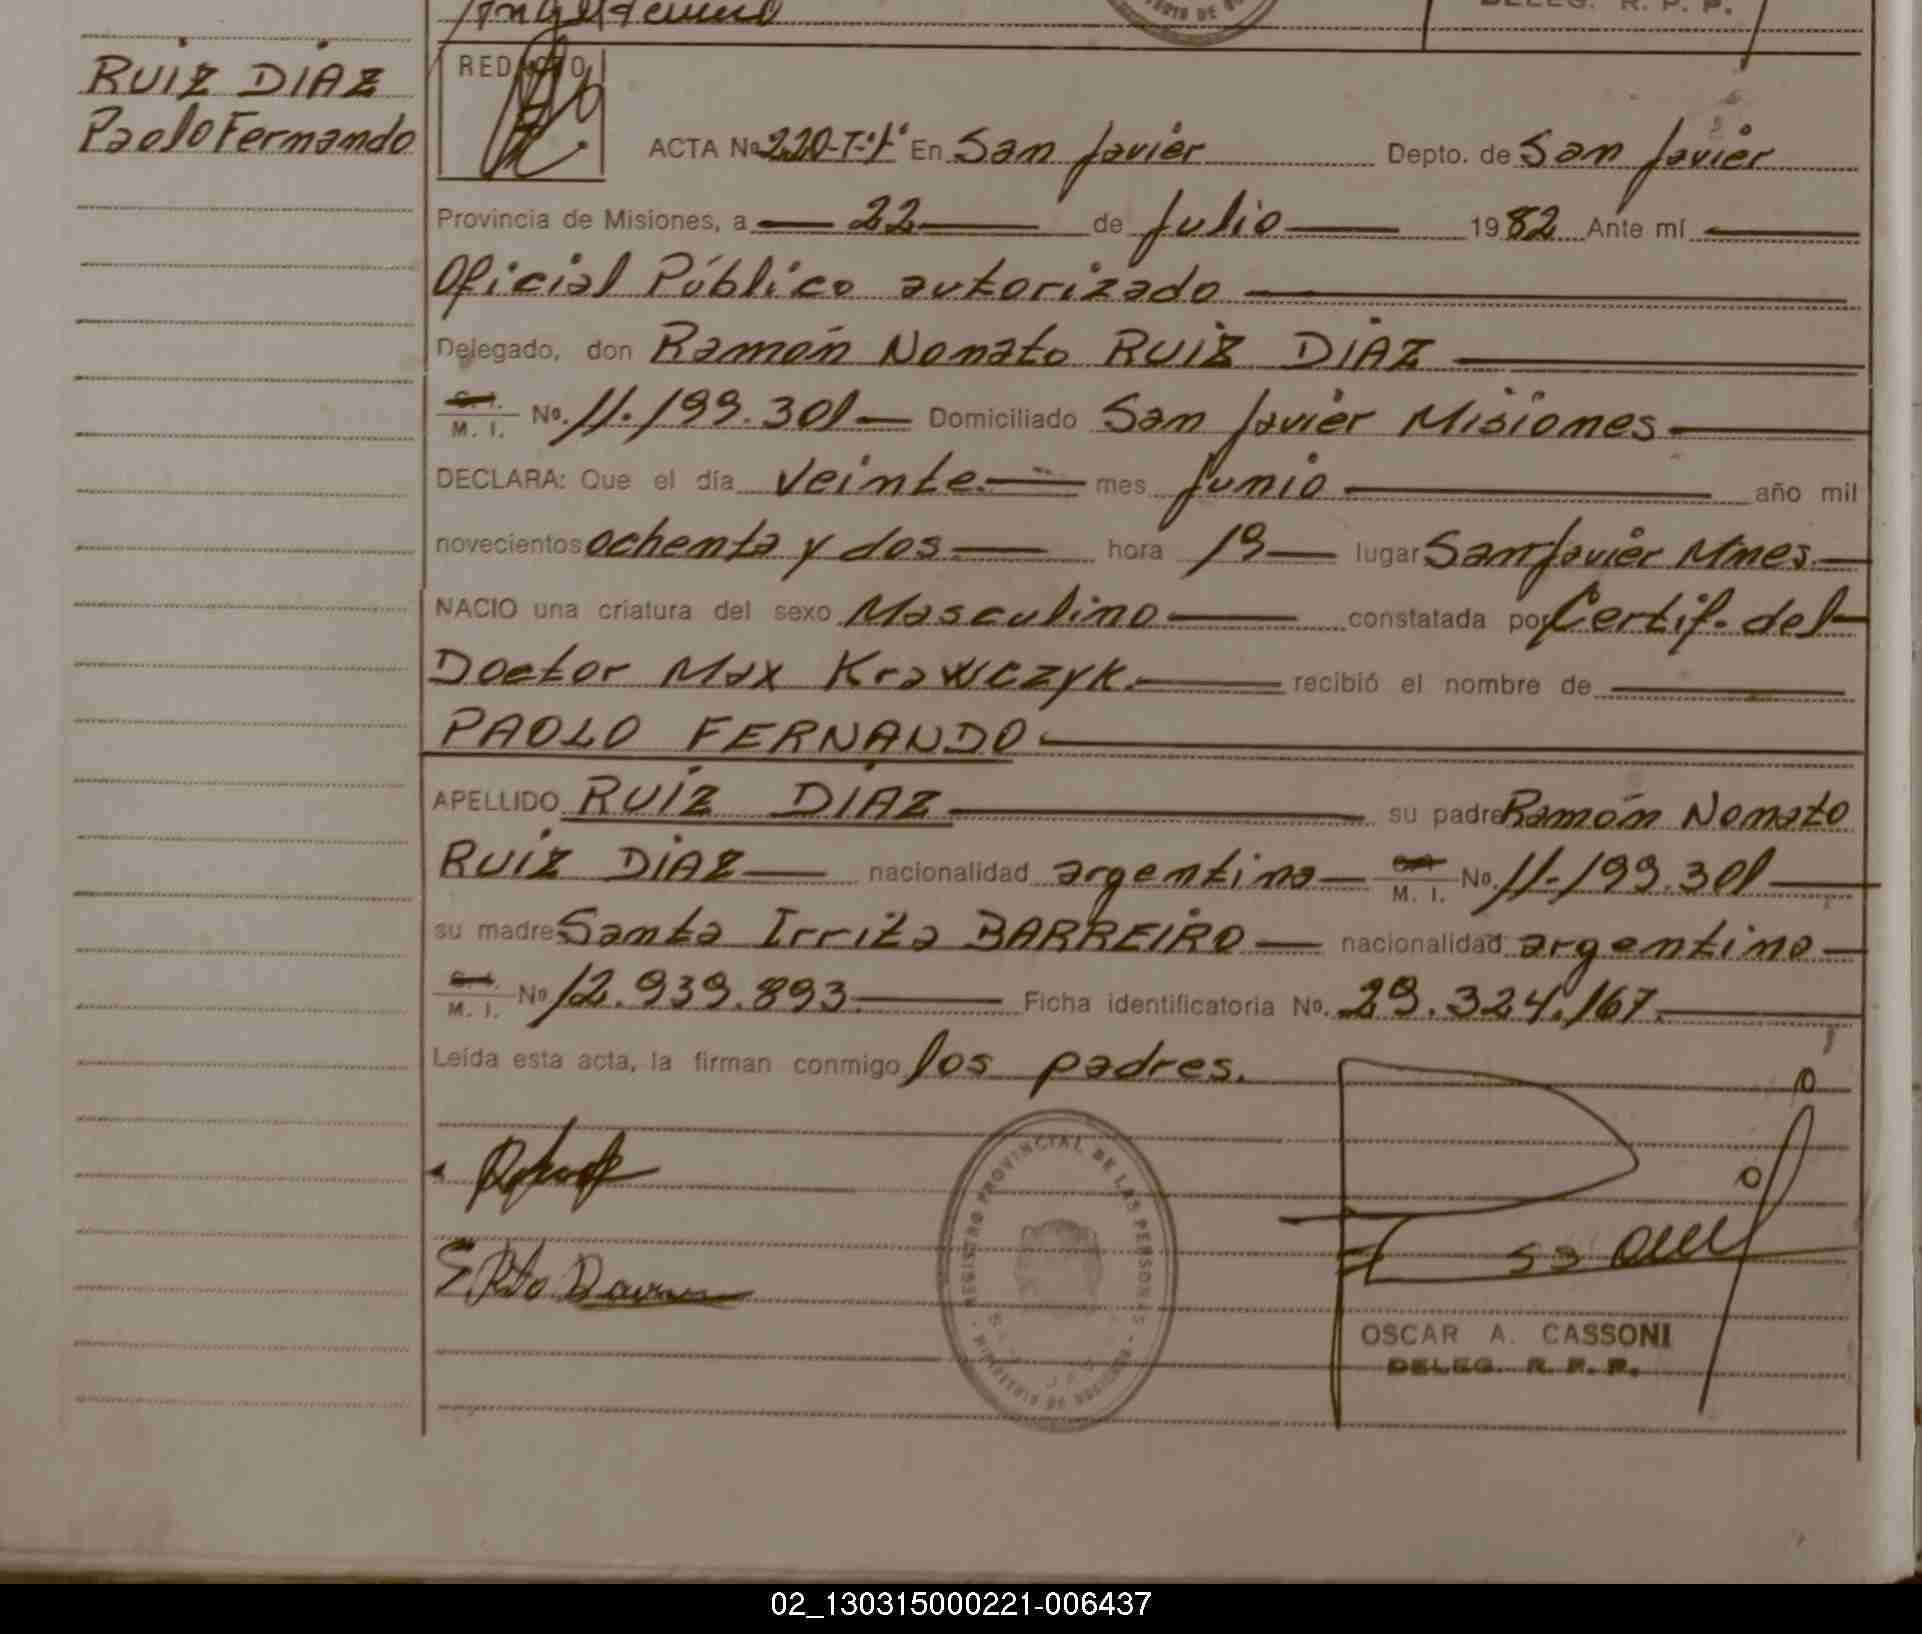 DELEG. R. P. P.
RUIZ DIAZ
Paolo Fernando
ACTA No. 220-T-1° En San Javier Depto. de San Javier
Provincia de Misiones, a 22 de Julio 1982 Ante mí
Oficial Público autorizado
Delegado, don Ramón Nonato RUIZ DIAZ
C. I.
M. I. No. 11.199.301 Domiciliado San Javier Misiones
DECLARA: Que el día veinte. mes Junio año mil
novecientos ochenta y dos hora 19 lugar San Javier Mnes.
NACIO una criatura del sexo Masculino constatada por Certif. del
Doctor Max Krawczyk. recibió el nombre de
PAOLO FERNANDO
APELLIDO RUIZ DIAZ su padre Ramón Nonato
RUIZ DIAZ nacionalidad argentina M. I. No. 11.199.301
su madre Santa Irrita BARREIRO nacionalidad argentina
C. I.
M. I. No. 12.939.893 Ficha identificatoria No. 29.324.167.
Leída esta acta, la firman conmigo los padres.
REGISTRO PROVINCIAL DE LAS PERSONAS
MINISTERIO DE GOBIERNO
OSCAR A. CASSONI
DELEG. R. P. P.
02_130315000221-006437